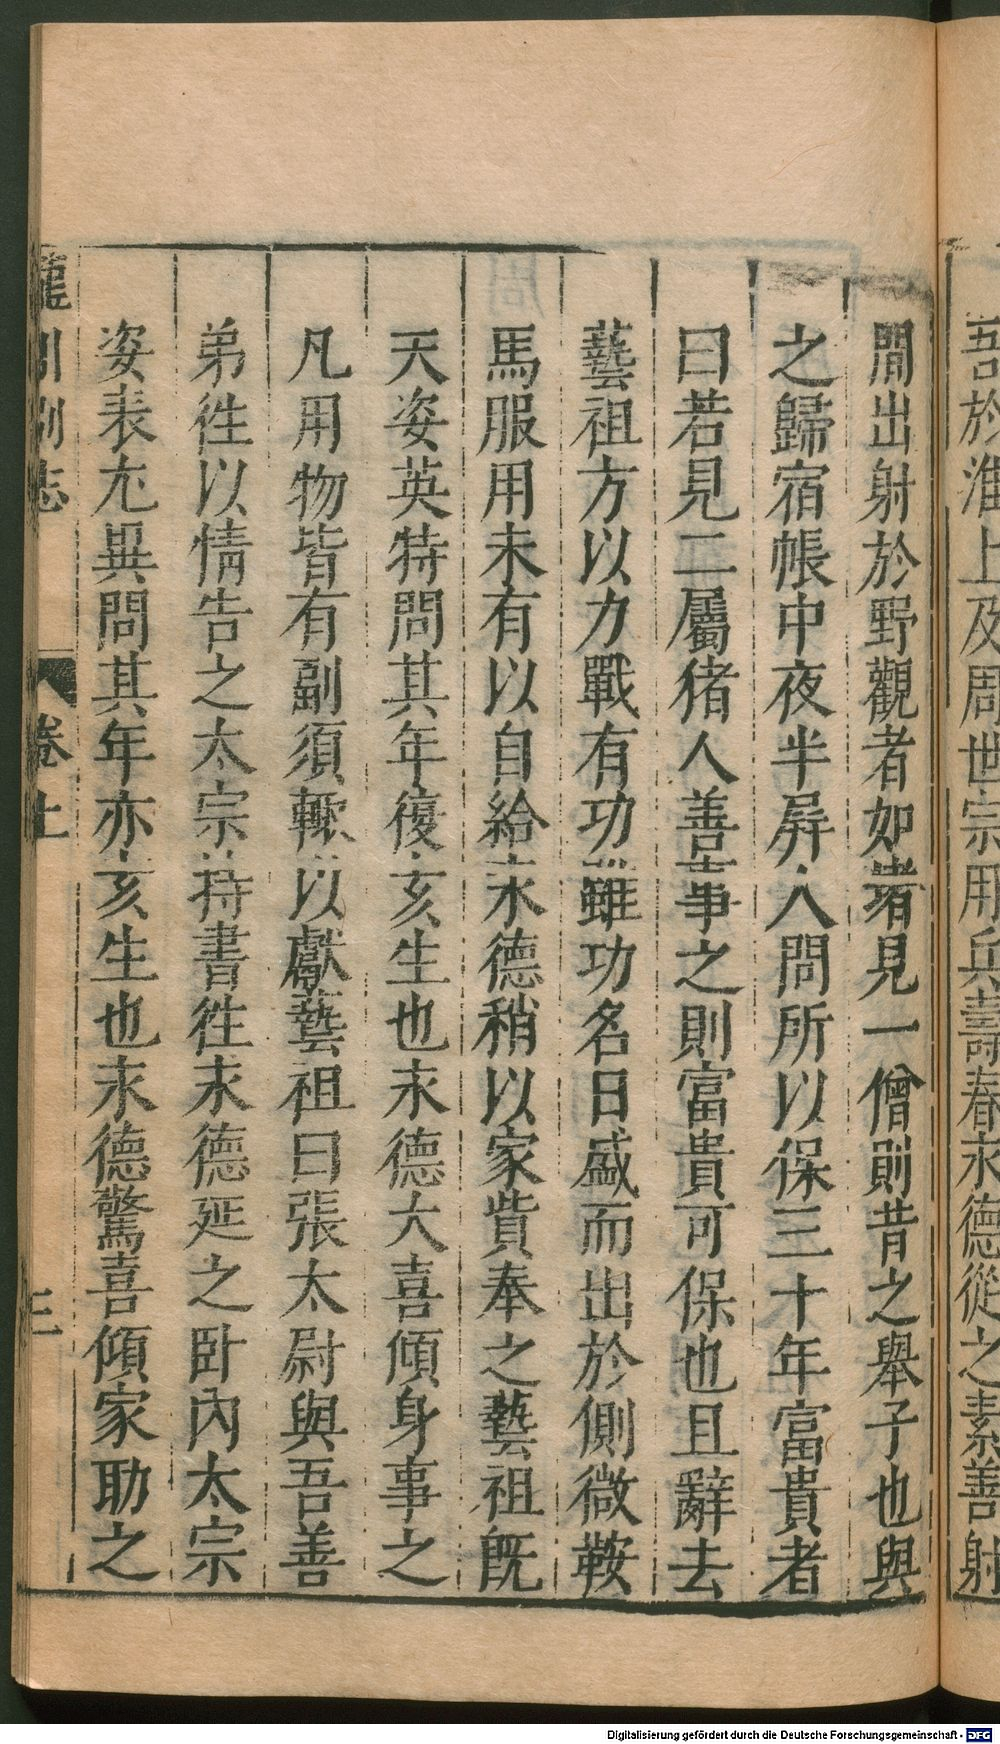 吾於淮上及周世宗用兵壽春永德從之素善射
間出射於野觀者如堵見一僧則昔之舉子也與
之歸宿帳中夜半屏人問所以保三十年富貴者
曰若見二屬猪人善事之則富貴可保也且辭去
藝祖方以力戰有功雖功名日盛而出於側微鞍
馬服用未有以自給永德稍以家貲奉之藝祖旣
天姿英特問其年復亥生也永德大喜傾身事之
凡用物皆有副須輙以獻藝祖曰張太尉與吾善
弟徃以情告之太宗持書徃永德延之卧內太宗
姿表尤異問其年亦亥生也永德驚喜傾家助之
龍川別志 卷上 三
Digitalisierung gefördert durch die Deutsche Forschungsgemeinschaft - DFG